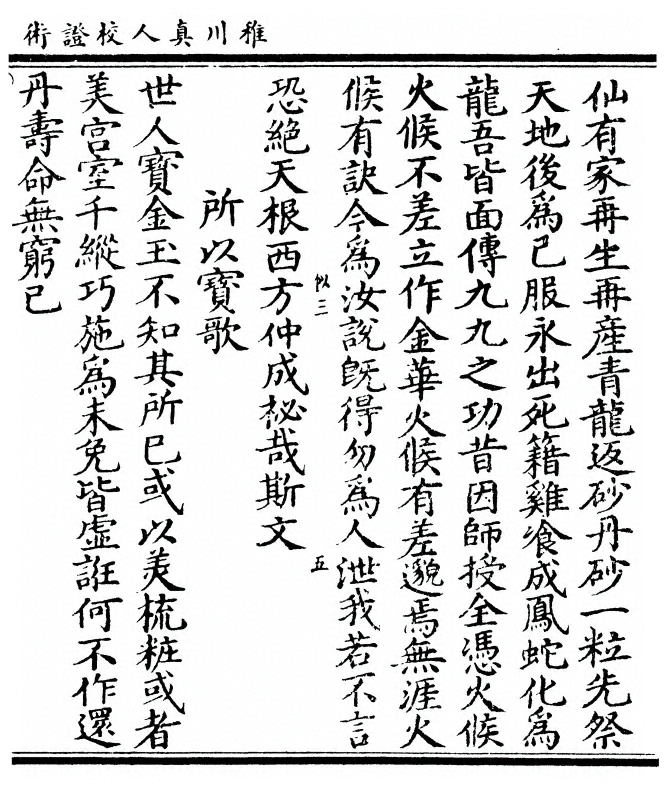 稚川真人校證術
仙有家再生再產青龍返砂丹砂一粒先祭
天地後爲己服永出死籍雞飡成鳳蛇化爲
龍吾皆面傳九九之功昔因師授全憑火候
火候不差立作金華火候有差邈焉無涯火
候有訣今爲汝說旣得勿爲人泄我若不言
似三 五
恐絕天根西方仲成祕哉斯文
所以寶歌
世人寶金玉不知其所已或以美梳粧或者
美宮室千縱巧施爲未免皆虛誑何不作還
丹壽命無窮已